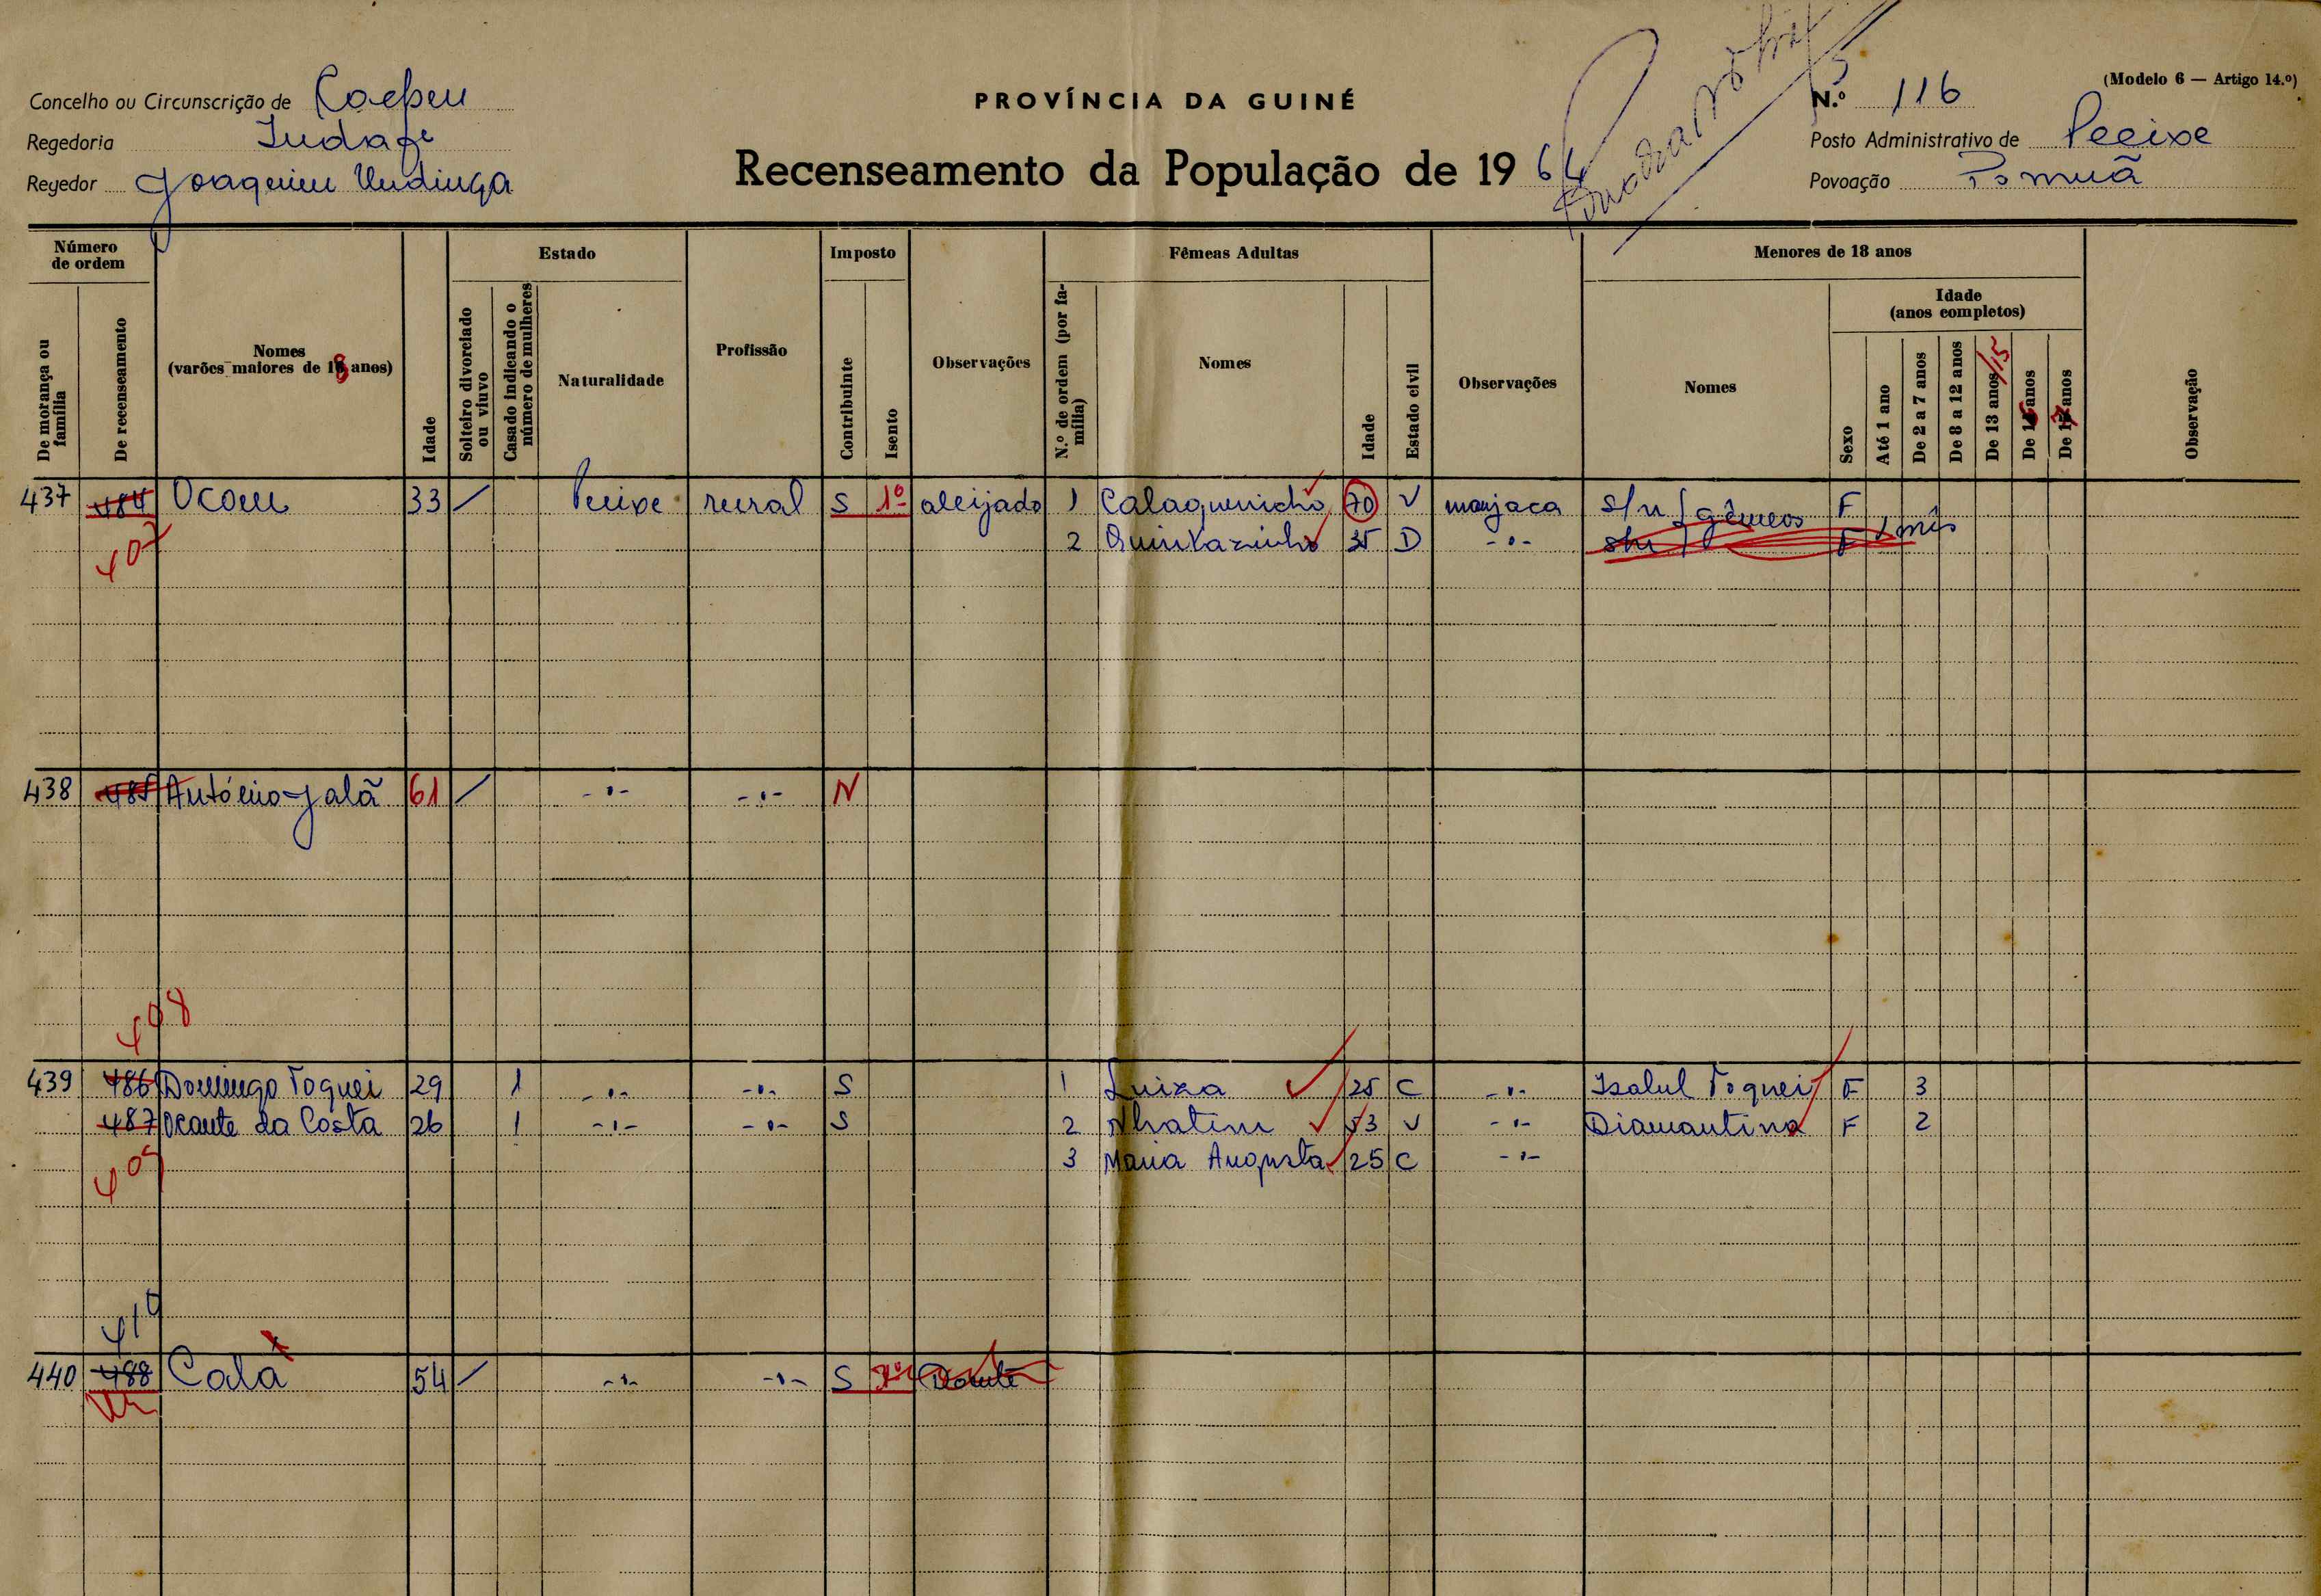 (Modelo 6 — Artigo 14.º)
Concelho ou Circunscrição de
PROVÍNCIA DA GUINÉ
N.º 116
Regedoria
Posto Administrativo de Pecixe
Regedor Joaquim Undinga
Recenseamento da População de 1964
Povoação
Número de ordem
De morança ou família
De recenseamento
Nomes
(varões maiores de 18 anos)
Idade
Estado
Solteiro divorciado ou viuvo
Casado indicando o número de mulheres
Naturalidade
Profissão
Imposto
Contribuinte
Isento
Observações
Fêmeas Adultas
N.º de ordem (por família)
Nomes
Idade
Estado civil
Observações
Menores de 18 anos
Nomes
Idade
(anos completos)
Sexo
Até 1 ano
De 2 a 7 anos
De 8 a 12 anos
De 13 anos/15
De anos
De 17 anos
Observação
437 484 Ocom 33 / Pecixe rural S 1º aleijado 1 70 V manjaca s/n gêmeos F
407 2 35 D -"- s/n F 1 mês
438 485 António Jalã 61 / -"- -"- N
408
439 486 Domingo Toquei 29 1 -"- -"- S 1 Luiza 25 C -"- Isabel Toquei F 3
487 Ocante da Costa 26 1 -"- -"- S 2 Nhatim 53 V -"- Diamantina F 2
409 3 Maria Augusta 25 C -"-
410
440 488 Cala 54 / -"- -"- S Doente